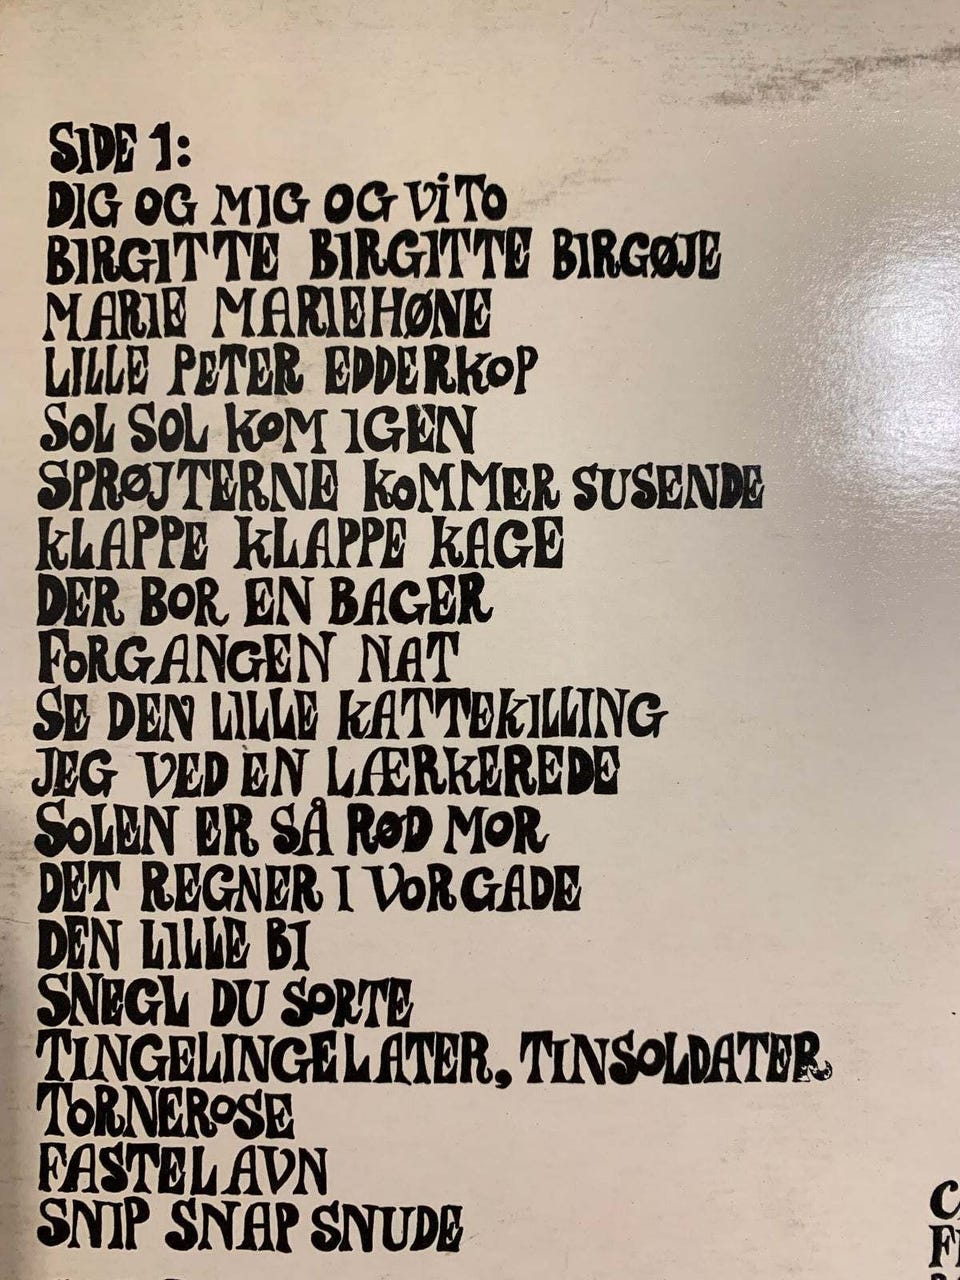 SIDE 1:
DIG OG MIG OG ViTo
BIRGITTE BIRGITTE BIRGØJE
MARIE MARIEHØNE
LILLE PETER EDDERKOP
SOL SOL KOM IGEN
SPRØJTERNE KOMMER SUSENDE
KLAPPE KLAPPE KAGE
DER BOR EN BAGER
FORGANGEN NAT
SE DEN LILLE KATTEKILLING
JEG VED EN LÆRKEREDE
SOLEN ER SÅ RØD MOR
DET REGNER I VOR GADE
DEN LILLE BI
SNEGL DU SORTE
TINGELINGELATER, TINSOLDATER
TORNEROSE
FASTELAVN
SNIP SNAP SNUDE